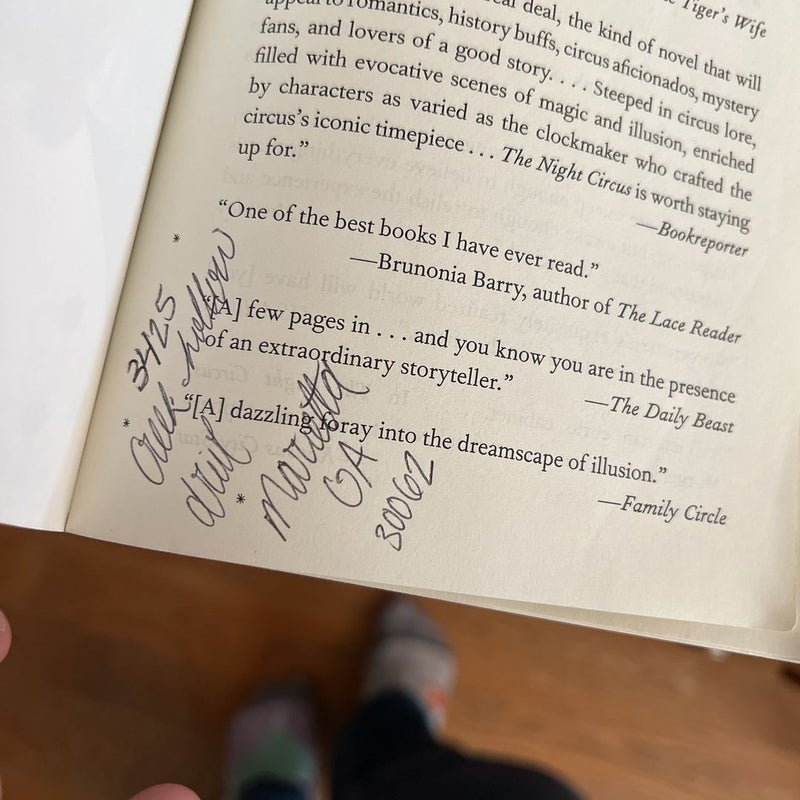 Tiger's Wife
deal, the kind of novel that will
appeal to romantics, history buffs, circus aficionados, mystery
fans, and lovers of a good story. . . . Steeped in circus lore,
filled with evocative scenes of magic and illusion, enriched
by characters as varied as the clockmaker who crafted the
circus's iconic timepiece . . . The Night Circus is worth staying
up for."
—Bookreporter
*
"One of the best books I have ever read."
—Brunonia Barry, author of The Lace Reader
*
"[A] few pages in . . . and you know you are in the presence
of an extraordinary storyteller."
—The Daily Beast
*
"[A] dazzling foray into the dreamscape of illusion."
—Family Circle
3425
Creek hollow
drive
Marietta
GA
30062